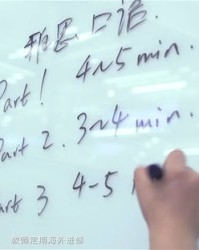 雅思口语.
Part 1 4~5 min.
Part 2. 3~4 min.
Part 3 4-5
教师定期海外进修